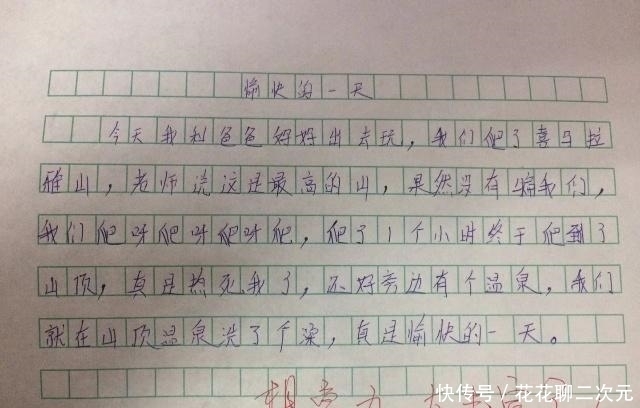 愉快的一天
今天我和爸爸妈妈出去玩，我们爬了喜马拉
雅山，老师说这是最高的山，果然没有骗我们，
我们爬呀爬呀爬呀爬，爬了1个小时终于爬到了
山顶，真是热死我了，还好旁边有个温泉，我们
就在山顶温泉洗了个澡，真是愉快的一天。
想象力
快传号/花花聊二次元